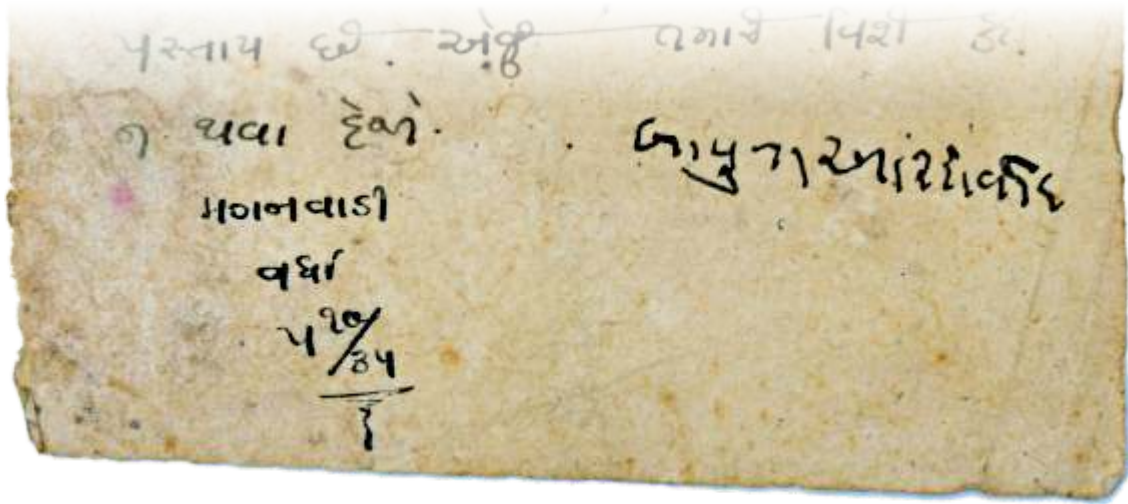 પસ્તાય છે. એવું તમારે વિશે કદી
ન થવા દેજો. બાપુના આશીર્વાદ
મગનવાડી
વર્ધા
૫ ૧૦/૩૫